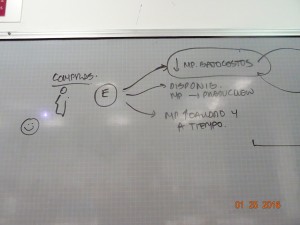 COMPRAS.
E
↓ MP. BAJO COSTOS
DISPONIB.
MP → PRODUCCIÓN
MP ↑ CALIDAD Y
A TIEMPO.
01 26 2016